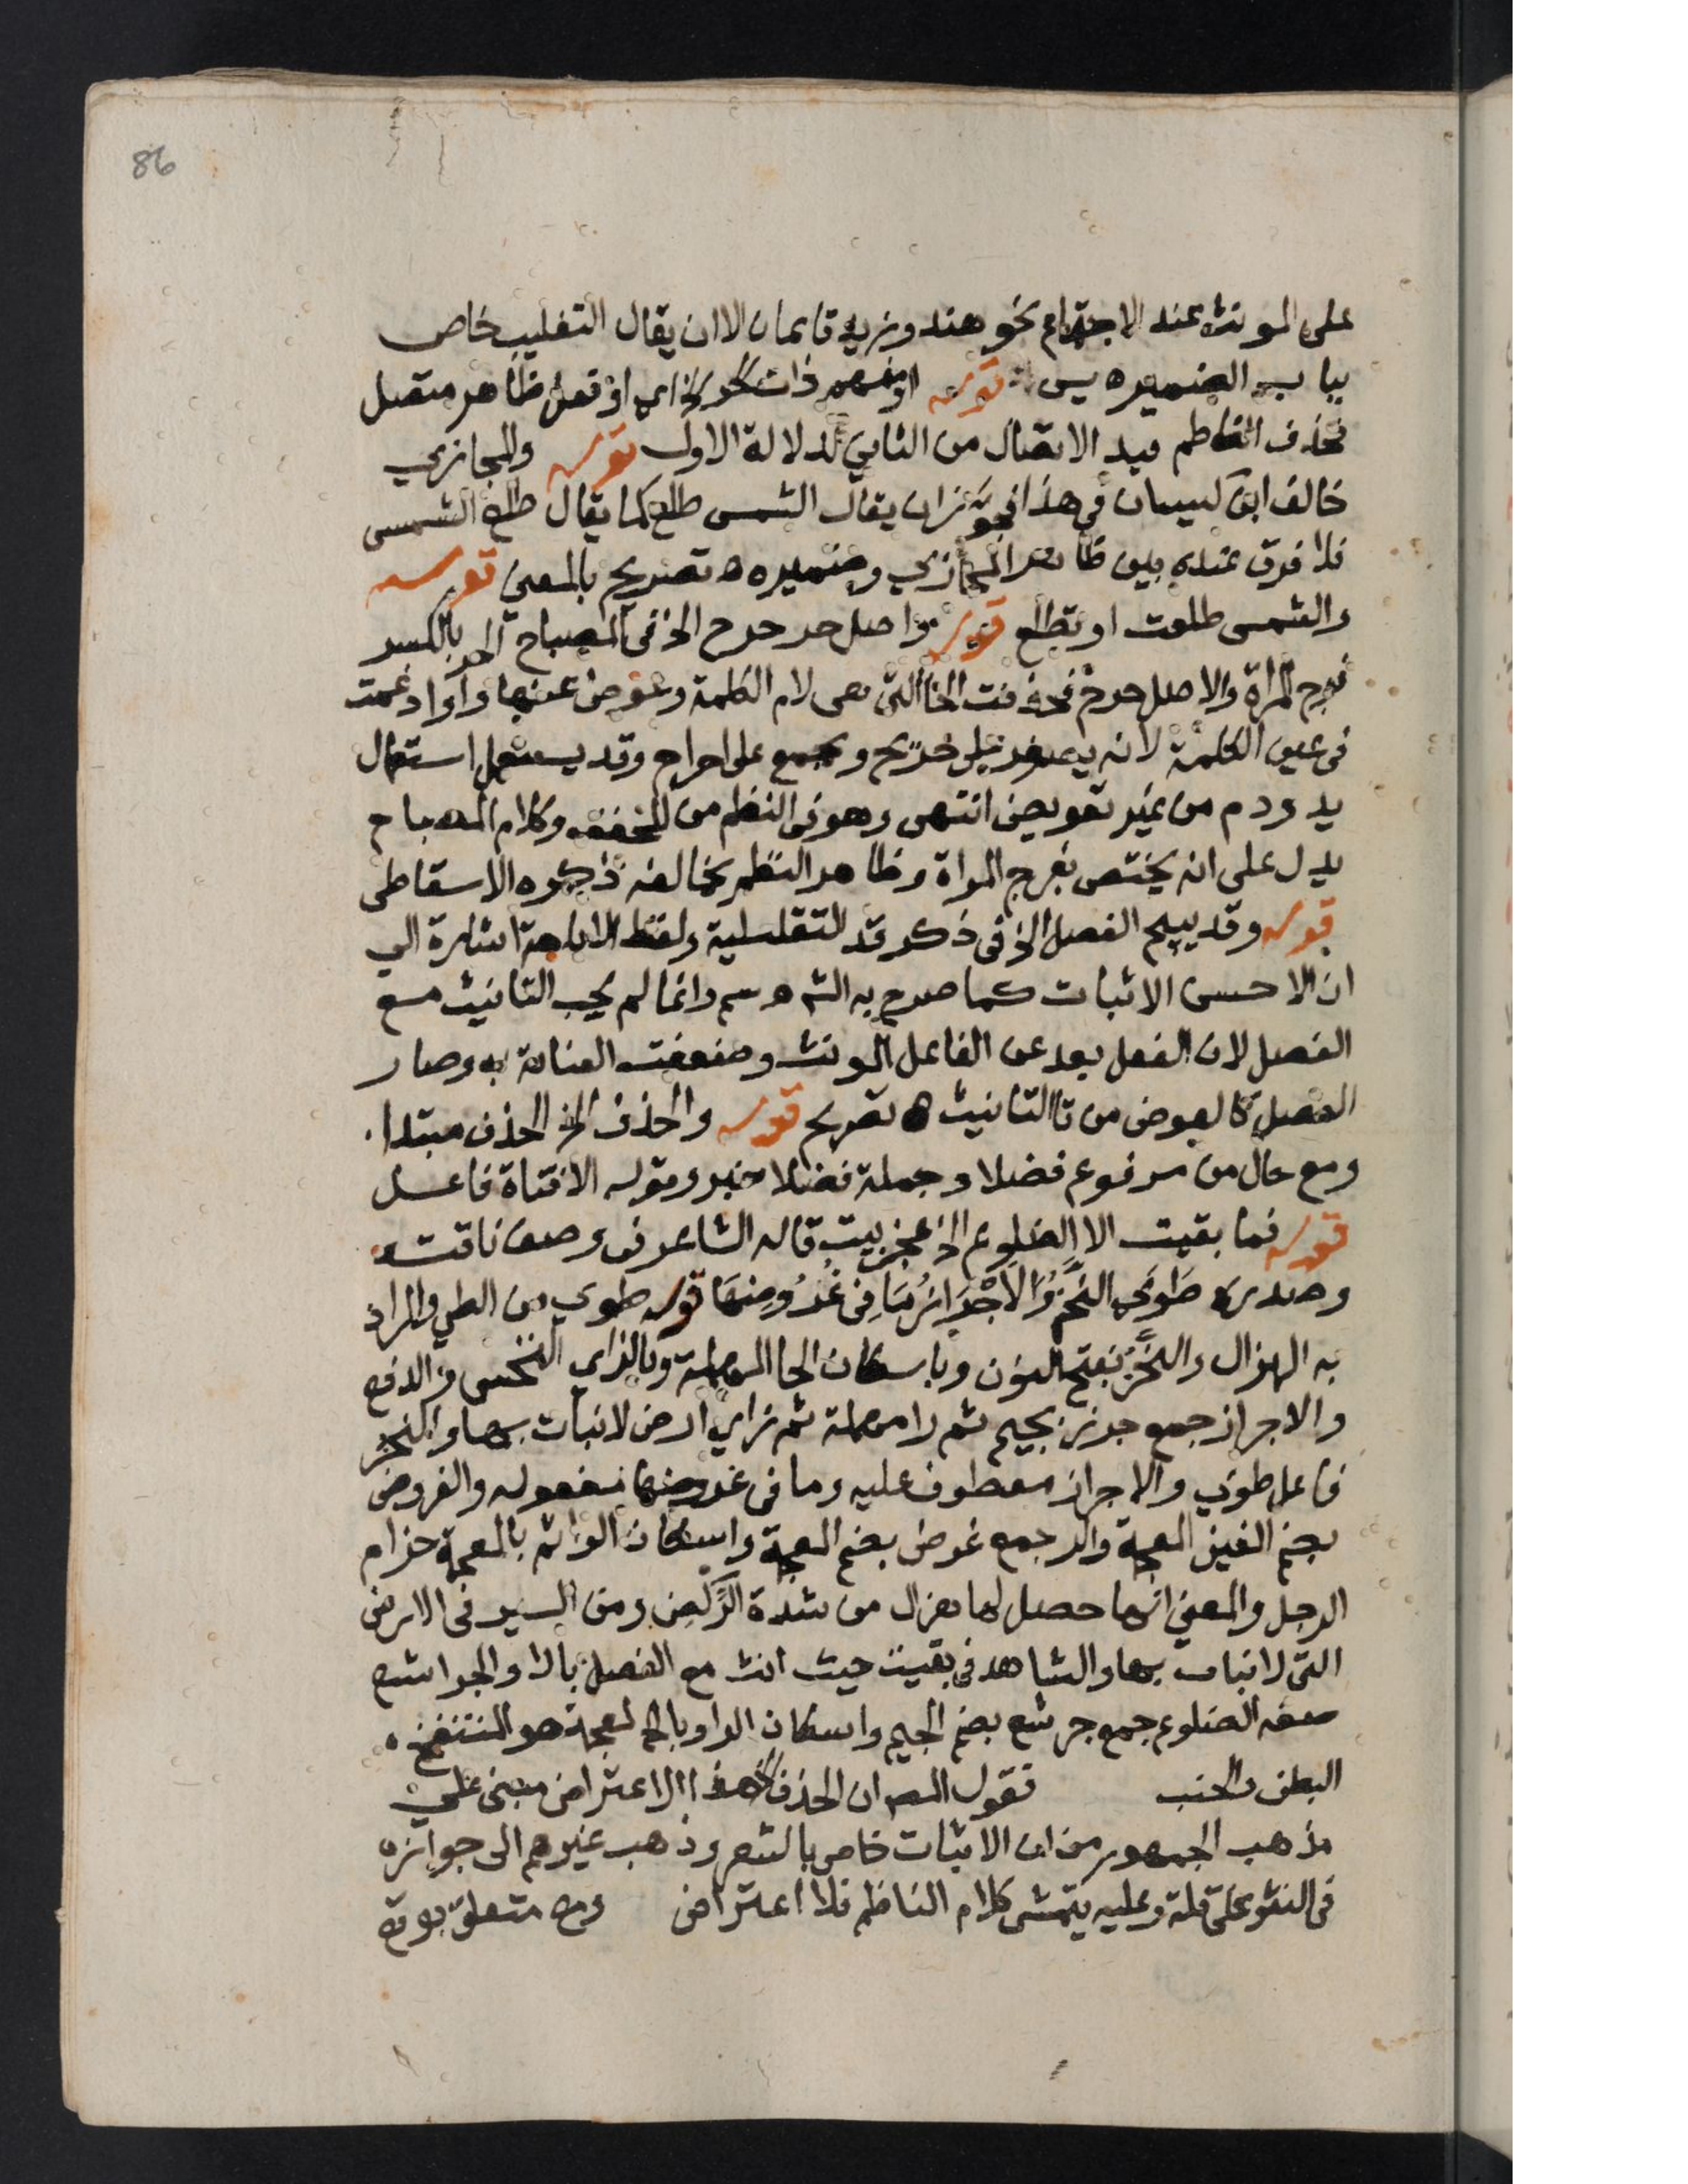 86
على المونث عند الاجتماع نحو هند وزيد قايمان الا ان يقال التغليب خاص
بباب الضمير ه يس قوله او مفهم ذات حر الخ اي او فعل ظاهر متصل
فحذف الناظم قيد الاتصال من الثاني لدلالة الاول قوله والمجازي
خالف ابن كيسان في هذا فجوز ان يقال الشمس طلع كما يقال طلع الشمس
فلا فرق عنده بين ظاهر المجازي وضميره ه تصريح بالمعنى قوله
والشمس طلعت او تطلع قوله واصل حر حرح الخ في المصباح الحر بالكسر
فرج المراة والاصل حرح فحذفت الحا التي هي لام الكلمة وعوض عنها را وادغمت
في عين الكلمة لانه يصغر على حريح ويجمع على احراح وقد يستعمل استعمال
يد ودم من غير تعويض انتهى وهو في النظم من المخفف وكلام المصباح
يدل على انه يختص بفرج المراة وظاهر النظم يخالفه ذكره الاسقاطي
قوله وقد يبيح الفصل الخ في ذكر قد التقليلية ولفظ الاباحة اشارة الى
ان الاحسن الاثبات كما صرح به الش ه سم وانما لم يجب التانيث مع
الفصل لان الفعل بعد عن الفاعل المونث وضعفت العناية به وصار
الفصل كالعوض من تا التانيث ه تصريح قوله والحذف الخ الحذف مبتدا
ومع حال من مرفوع فضلا وجملة فضلا خبر وقوله الا فتاة فاعل
قوله فما بقيت الا الضلوع الخ عجز بيت قاله الشاعر في وصف ناقته
وصدره طَوى النَّحْزُ والاَجْرَازُ مَا فِى غُرُوضِهَا قوله طوي من الطي والمراد
به الهزال والنَّحْز بفتح النون وباسكان الحا المهملة وبالزاي النخس والدفع
والاجراز جمع جرز بجيم ثم را مهملة ثم زاي ارض لانبات بها والنحز
فاعل طوى والاجراز معطوف عليه وما في غروضها مفعوله والغروض
بضم الغين المعجمة والرا جمع غرض بضم المعجمة واسكان الرا ثم بالمعجمة حزام
الرحل والمعنى انها حصل لها هزال من شدة الركض ومن السير في الارض
التي لا نبات بها والشاهد في بقيت حيث انث مع الفصل بالا والجراشع
صفه الضلوع جمع جرشع بضم الجيم واسكان الرا وبالـ المعجمة هو المنتفخ
البطن والجنب فقول المص ان الحذف الخ هذا الاعتراض مبني على
مذهب الجمهور من ان الاثبات خاص بالشعر وذهب غيرهم الى جوازه
في النثر على قلة وعليه يتمشى كلام الناظم فلا اعتراض ومع متعلق بوقع